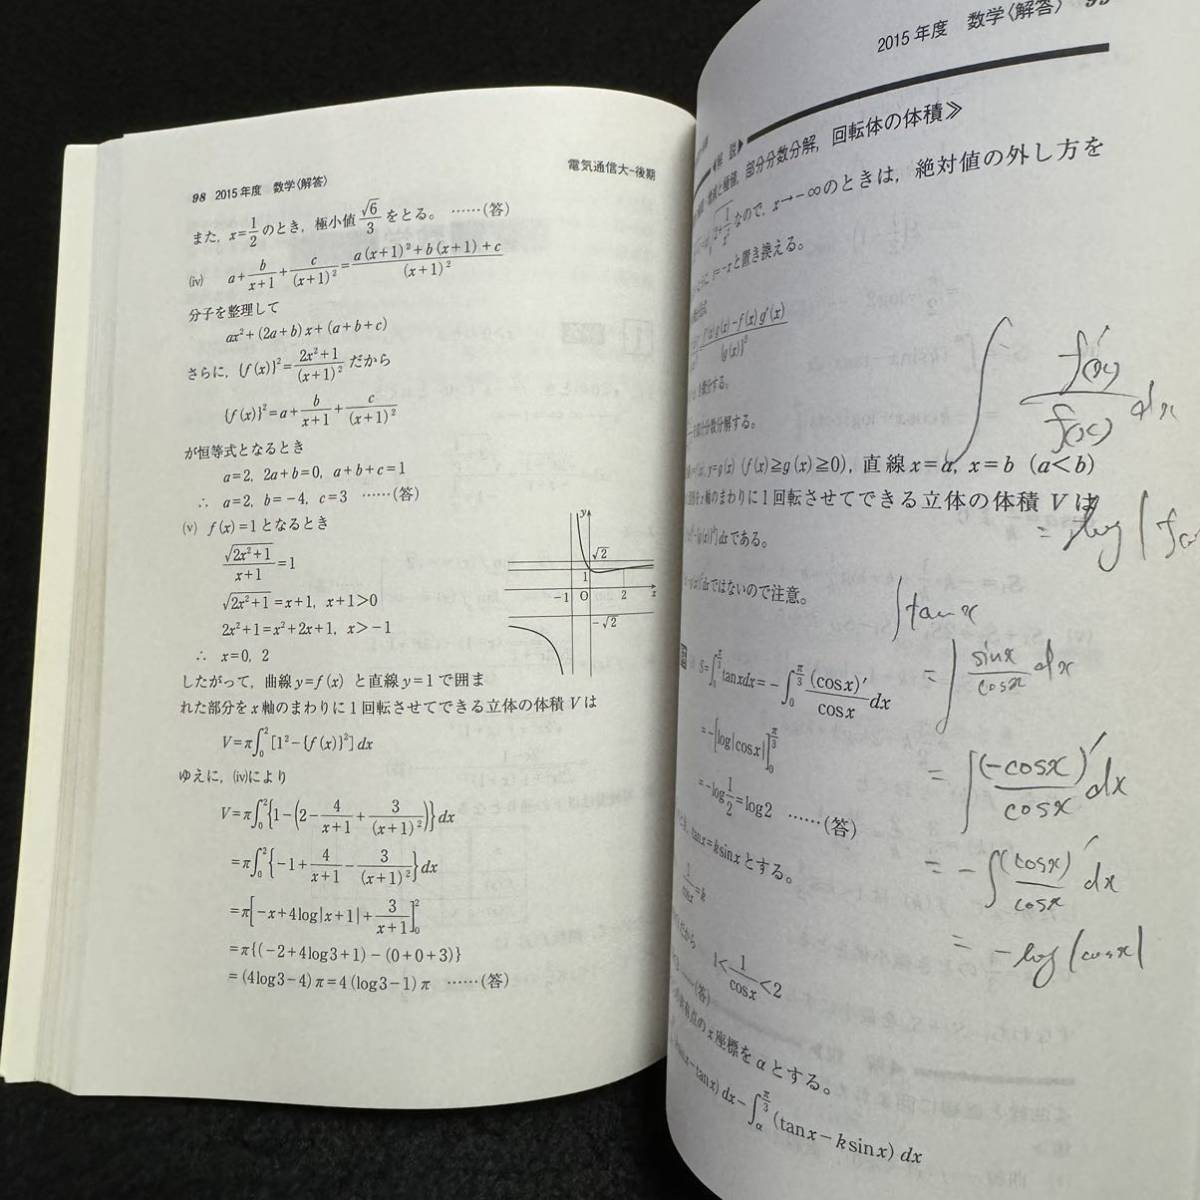 98 2015年度 数学〈解答〉
電気通信大-後期
また, x=1/2 のとき, 極小値 √6/3 をとる。 ……(答)
(iv) a+b/(x+1)+c/(x+1)²=(a(x+1)²+b(x+1)+c)/(x+1)²
分子を整理して
ax²+(2a+b)x+(a+b+c)
さらに, {f(x)}²=(2x²+1)/(x+1)² だから
{f(x)}²=a+b/(x+1)+c/(x+1)²
が恒等式となるとき
a=2, 2a+b=0, a+b+c=1
∴ a=2, b=-4, c=3 ……(答)
(v) f(x)=1となるとき
√(2x²+1)/(x+1)=1
√(2x²+1)=x+1, x+1>0
2x²+1=x²+2x+1, x>-1
∴ x=0, 2
y
√2
1
-1 O 2 x
-√2
したがって, 曲線 y=f(x) と直線 y=1 で囲ま
れた部分を x 軸のまわりに1回転させてできる立体の体積 V は
V=π∫₀²[1²-{f(x)}²]dx
ゆえに, (iv)により
V=π∫₀²{1-(2-4/(x+1)+3/(x+1)²)}dx
=π∫₀²{-1+4/(x+1)-3/(x+1)²}dx
=π[-x+4log|x+1|+3/(x+1)]₀²
=π{(-2+4log3+1)-(0+0+3)}
=(4log3-4)π=4(log3-1)π ……(答)
2015年度 数学〈解答〉 99
◀解 説▶
部分分数分解, 回転体の体積≫
なので, x→-∞のときは, 絶対値の外し方を
=-xと置き換える。
f'(x)g(x)-f(x)g'(x)/{g(x)}²
分数分解する。
y=g(x) (f(x)≧g(x)≧0), 直線 x=a, x=b (a<b)
軸のまわりに1回転させてできる立体の体積 V は
dxである。
dxではないので注意。
S=∫₀^(π/3) tanxdx=-∫₀^(π/3) (cosx)'/cosx dx
=-[log|cosx|]₀^(π/3)
=-log1/2=log2 ……(答)
tanx=ksinx とする。
1/cosx=k
だから
1<1/cosx<2
……(答)
点の x 座標を α とする。
-tanx)dx-∫_α^(π/3)(tanx-ksinx)dx
∫ f'(x)/f(x) dx
= log|f(x)
∫tanx
= ∫ sinx/cosx dx
= ∫ (-cosx)'/cosx dx
= -∫ (cosx)'/cosx dx
= -log|cosx|